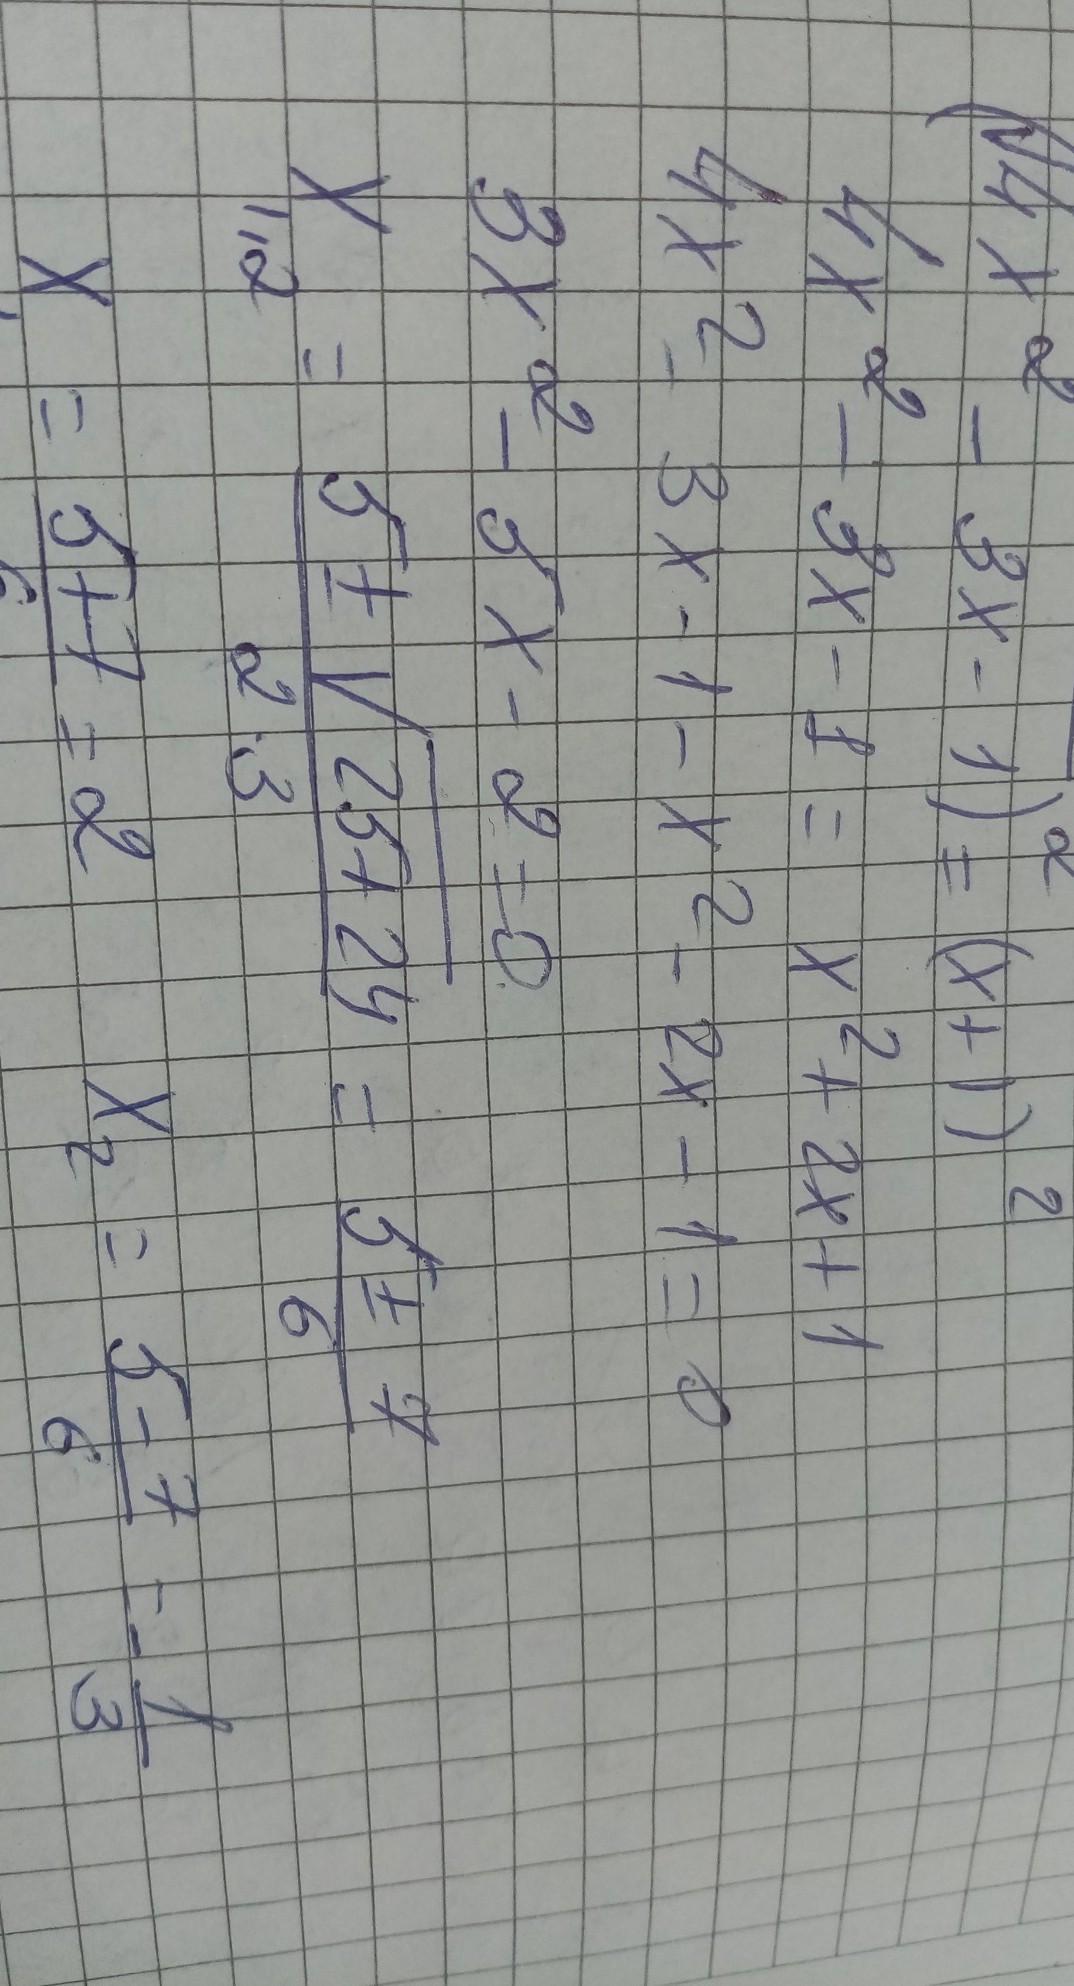 (√4x² - 3x - 1)² = (x+1)²
4x² - 3x - 1 = x² + 2x + 1
4x² - 3x - 1 - x² - 2x - 1 = 0
3x² - 5x - 2 = 0
x₁,₂ = (5 ± √25+24)/(2·3) = (5 ± 7)/6
x₁ = (5+7)/6 = 2 x₂ = (5-7)/6 = -1/3